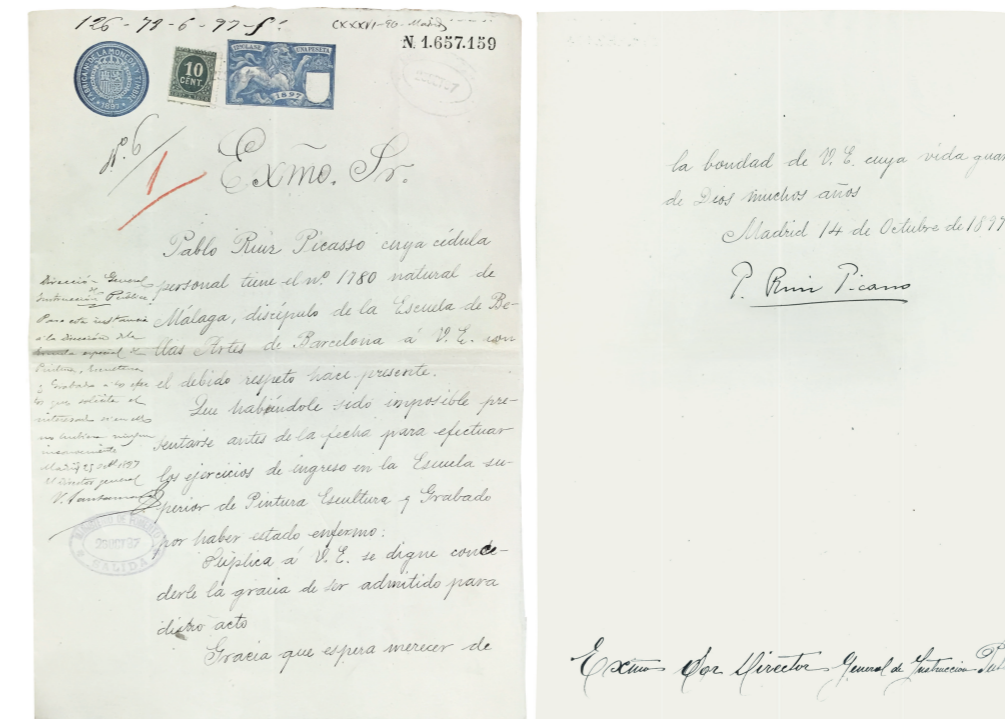 126-79-6-97-S:
CXXXVI-96-Madrid
N. 1.657.159
FABRICA N. DE LA MONEDA Y TIMBRE
1897
10
CENT.
UNA PESETA
1897
20 OCT 97
N.º 6
1
Exmo. Sr.
Pablo Ruiz Picasso cuya cédula
personal tiene el nº 1780 natural de
Málaga, discípulo de la Escuela de Be-
llas Artes de Barcelona á V. E. con
el debido respeto hace presente.
Que habiéndole sido imposible pre-
sentarse antes de la fecha para efectuar
los ejercicios de ingreso en la Escuela su-
perior de Pintura Escultura y Grabado
por haber estado enfermo:
Súplica á V. E. se digne conce-
derle la gracia de ser admitido para
dicho acto
Gracia que espera merecer de
Dirección General
de
Instrucción Pública
Pase esta instancia
a la Dirección de la
Escuela especial de
Pintura, Escultura
y Grabado a los efec
tos que solicita el
interesado si en ello
no hubiera ningun
inconveniente
Madrid 25 1897
El Director general
V. Santamaría
MINISTERIO DE FOMENTO
26 OCT 97
SALIDA
la bondad de V. E. cuya vida guar
de Dios muchos años
Madrid 14 de Octubre de 1897
P. Ruiz Picasso
Exmo Sor Director General de Instruccion Pub